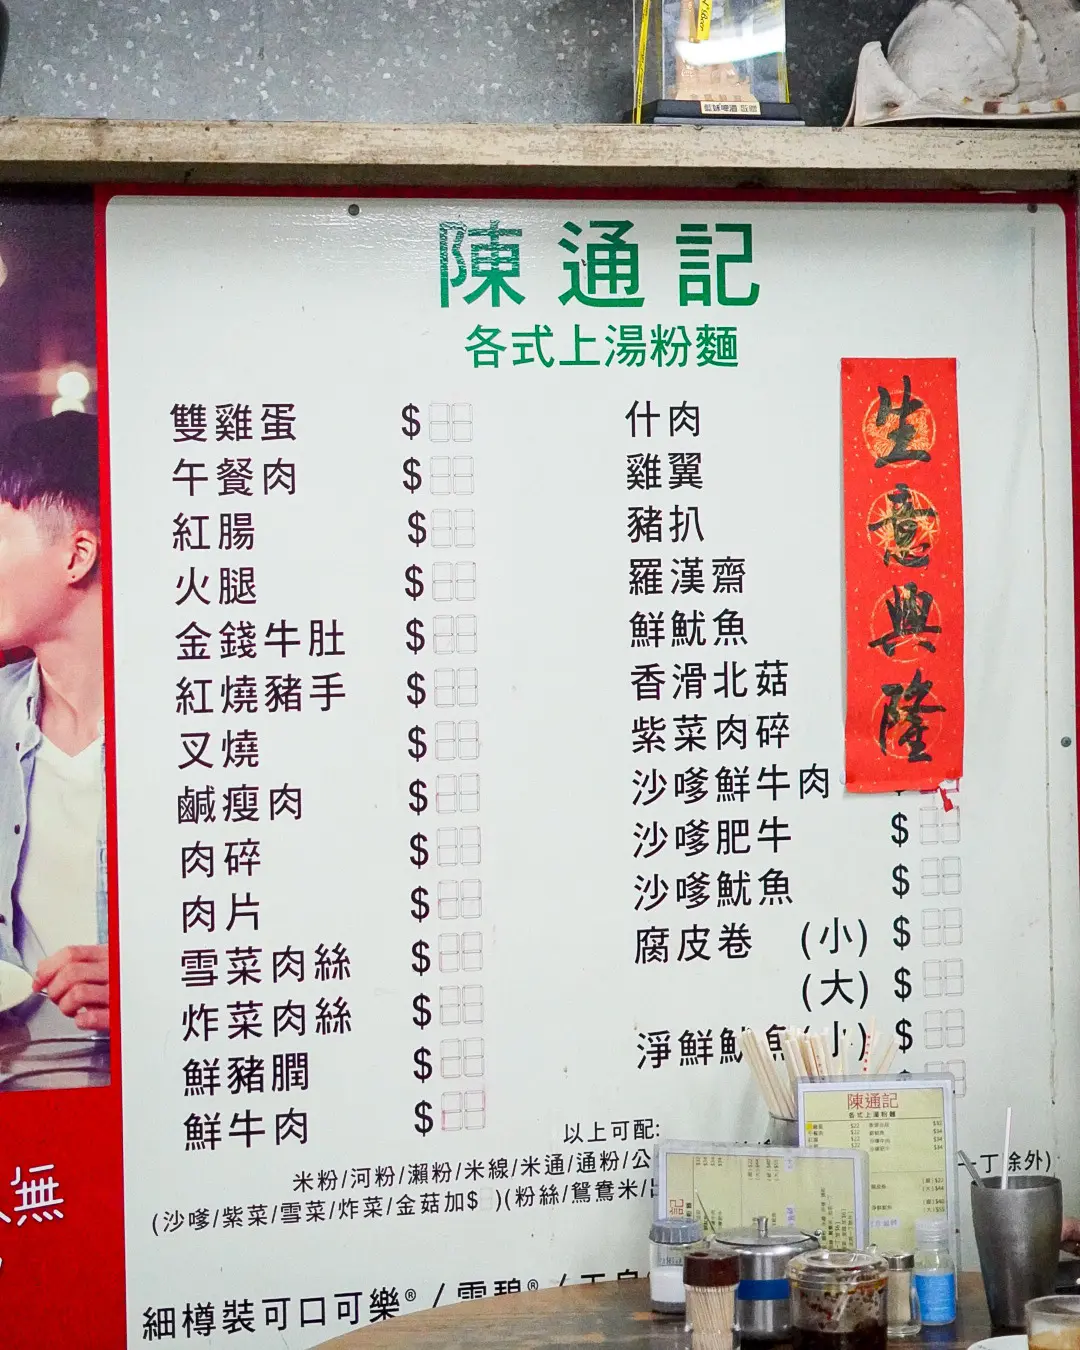 藍妹啤酒
陳通記
各式上湯粉麵
雙雞蛋 $
午餐肉 $
紅腸 $
火腿 $
金錢牛肚 $
紅燒豬手 $
叉燒 $
鹹瘦肉 $
肉碎 $
肉片 $
雪菜肉絲 $
炸菜肉絲 $
鮮豬膶 $
鮮牛肉 $
什肉
雞翼
豬扒
羅漢齋
鮮魷魚
香滑北菇
紫菜肉碎
沙嗲鮮牛肉
沙嗲肥牛 $
沙嗲魷魚 $
腐皮卷 (小) $
(大) $
淨鮮魷魚(小) $
生意興隆
以上可配:
米粉/河粉/瀨粉/米線/米通/通粉/公
丁除外)
(沙嗲/紫菜/雪菜/炸菜/金菇加$ )(粉絲/鴛鴦米/出
細樽裝可口可樂® / 雪碧® /
無
陳通記
各式上湯粉麵